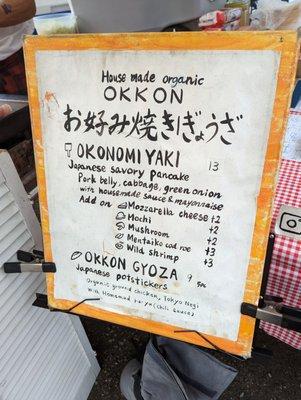 House made organic
OKKON
お好み焼きぎょうざ
OKONOMIYAKI 13
Japanese savory pancake
Pork belly, cabbage, green onion
with housemade sauce & mayonnaise
Add on Mozzarella cheese +2
Mochi +2
Mushroom +2
Mentaiko cod roe +3
Wild shrimp +3
OKKON GYOZA 9 5pc
Japanese potstickers
Organic ground chicken, Tokyo Negi
with Homemade (Chili Sauce)